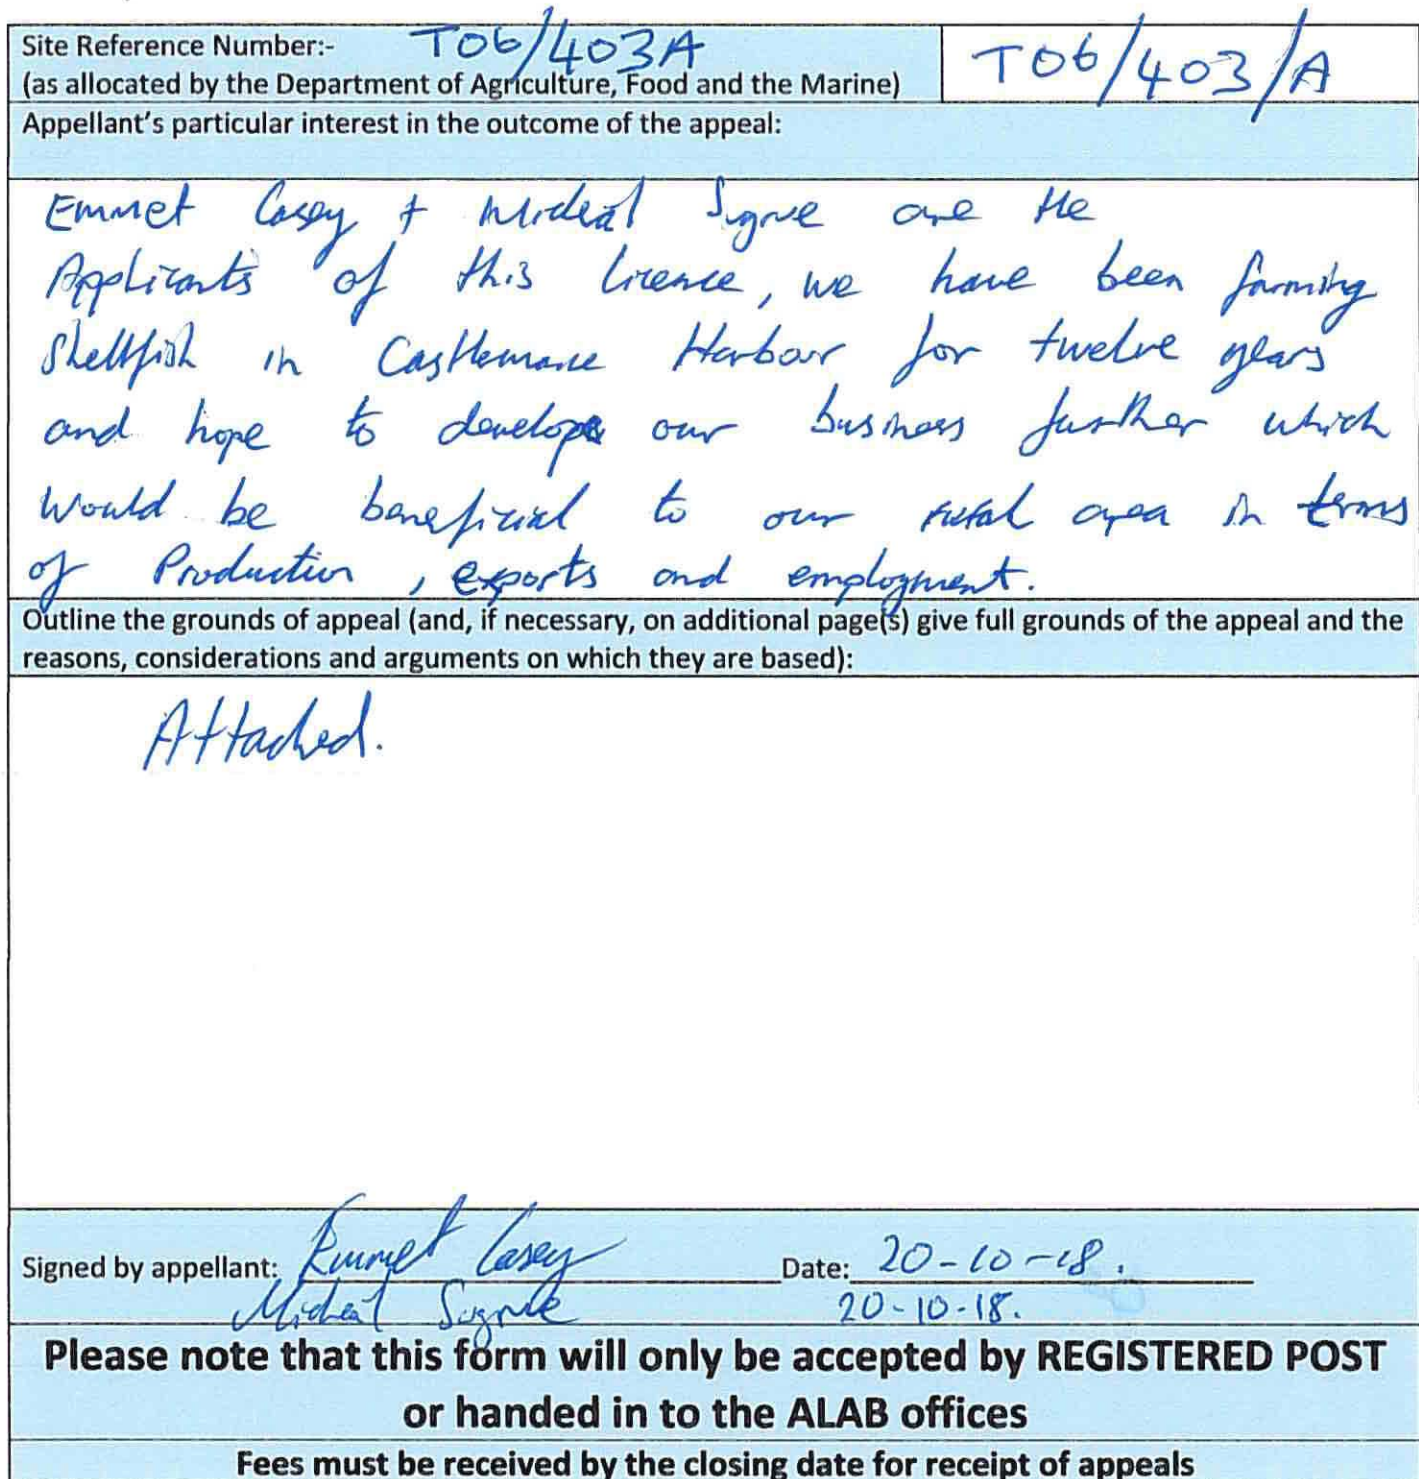 Site Reference Number:- T06/403A
(as allocated by the Department of Agriculture, Food and the Marine)
T06/403/A
Appellant's particular interest in the outcome of the appeal:
Emmet Casey + Micheál Sugrue are the
Applicants of this licence, we have been farming
Shellfish in Castlemaine Harbour for twelve years
and hope to develope our business further which
would be beneficial to our rural area in terms
of Production, exports and employment.
Outline the grounds of appeal (and, if necessary, on additional page(s) give full grounds of the appeal and the
reasons, considerations and arguments on which they are based):
Attached.
Signed by appellant: Emmet Casey Date: 20-10-18.
Micheál Sugrue 20-10-18.
Please note that this form will only be accepted by REGISTERED POST
or handed in to the ALAB offices
Fees must be received by the closing date for receipt of appeals